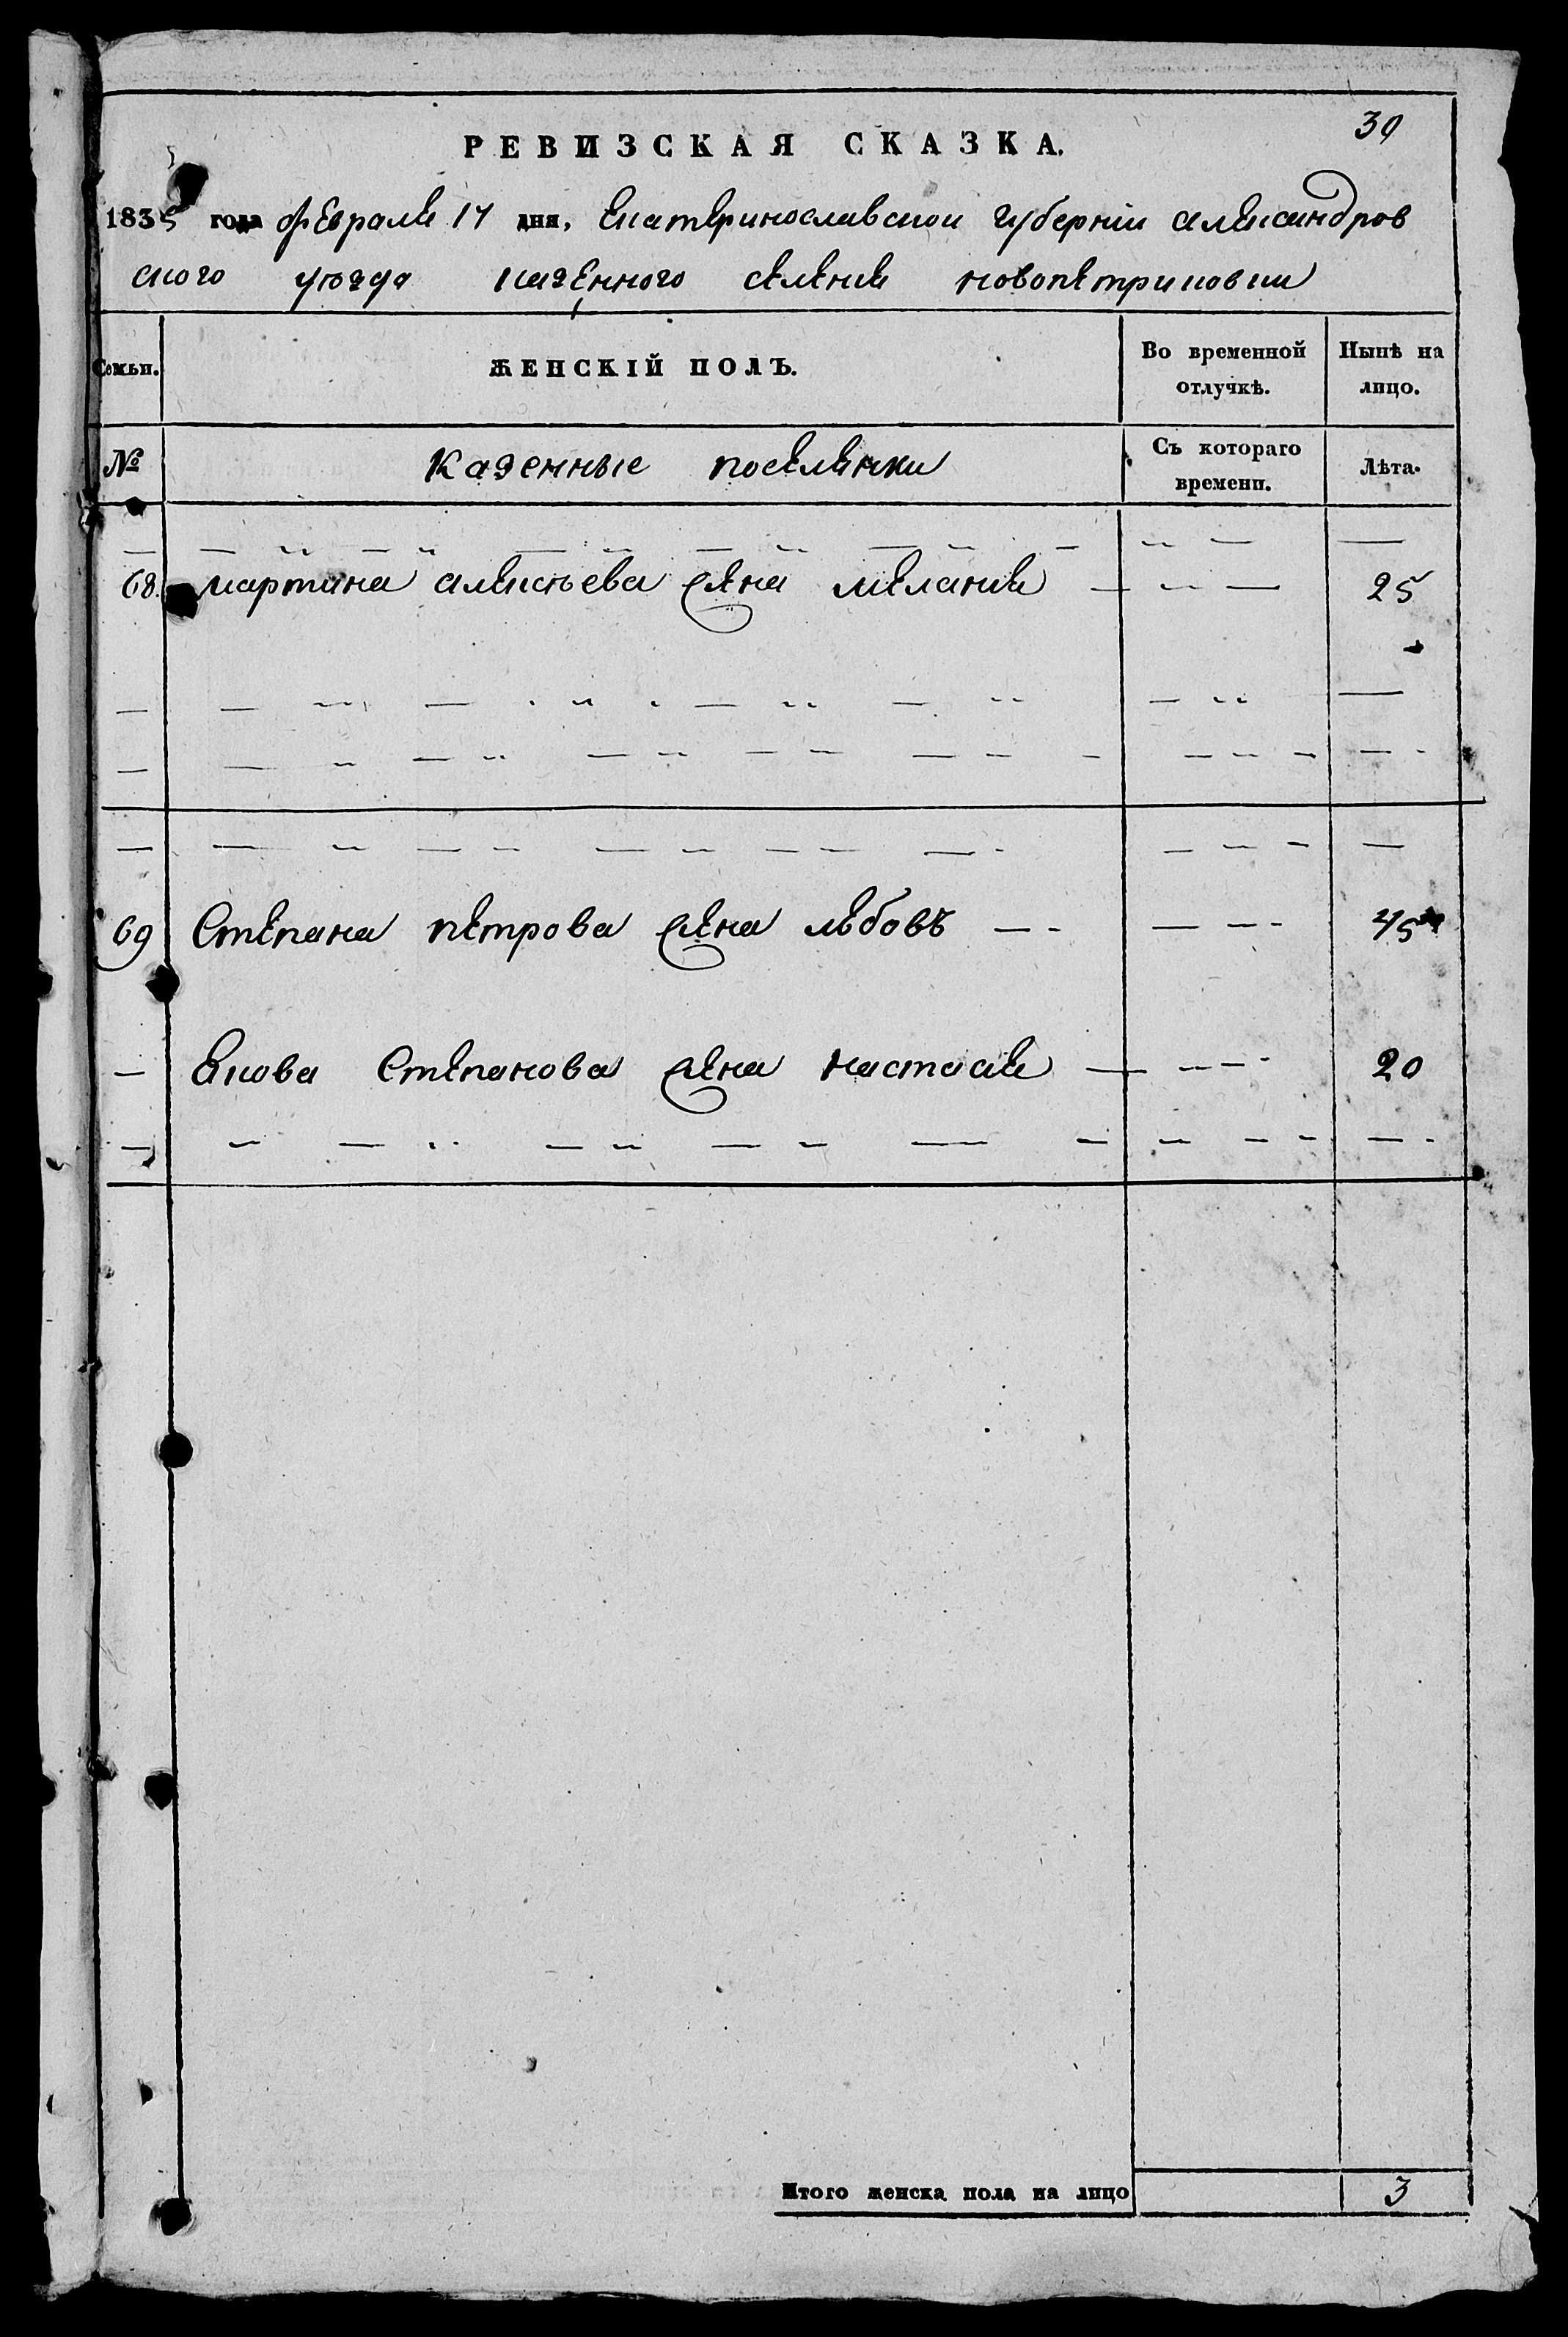 39
РЕВИЗСКАЯ СКАЗКА.
1835 года февраля 14 дня, Екатеринославской губернии александров
ского уезда казенного селения новопетриковки
Семьи. ЖЕНСКІЙ ПОЛЪ. Во временной отлучкѣ. Нынѣ на лицо.
№ Казенные поселянки Съ котораго времени. Лѣта.
68. мартина алексѣева жена мелания 25
69 Степана петрова жена любовъ 45
Якова Степанова жена настасия 20
Итого женска пола на лицо 3